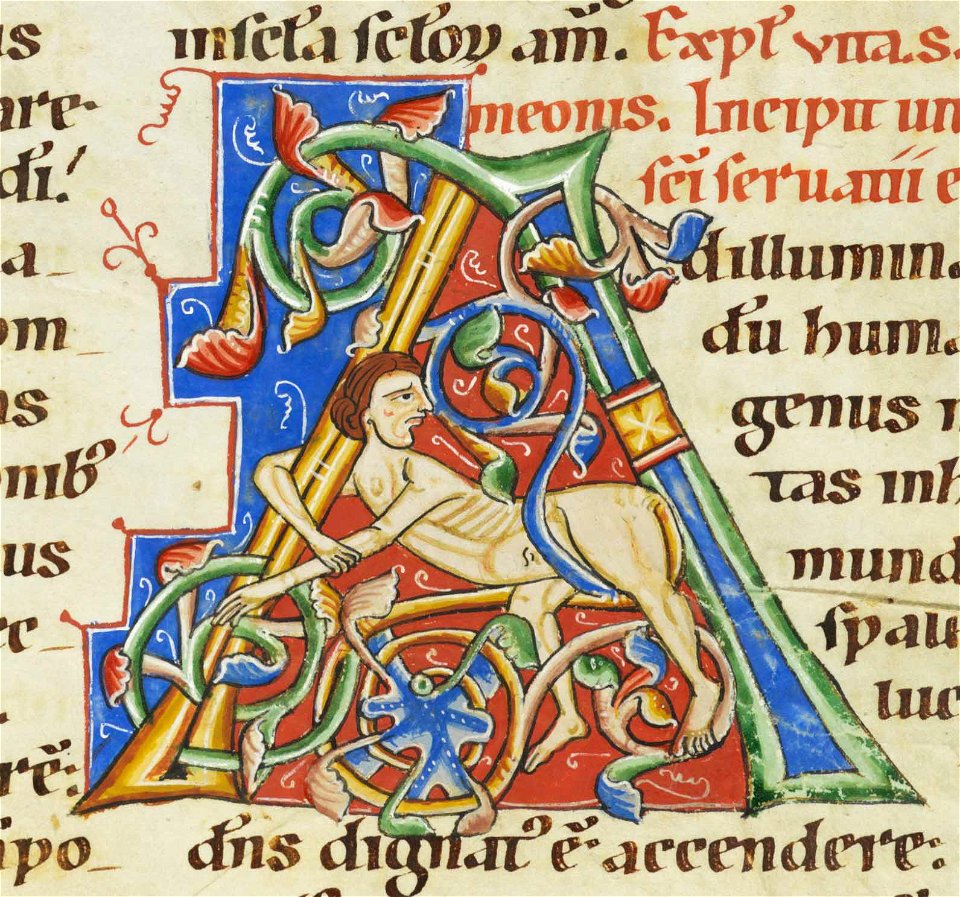 us
are·
di!
a
om
as
onibꝰ
us
rē:
ipo
insc̄la sc̄loꝝ am̄. Expl̄ vita.s.
meonis. Incipit
sc̄i seruatii
Adillumin
dū hum
genus
tas inh
mund
luc
dn̄s dignatꝰ ē accendere: